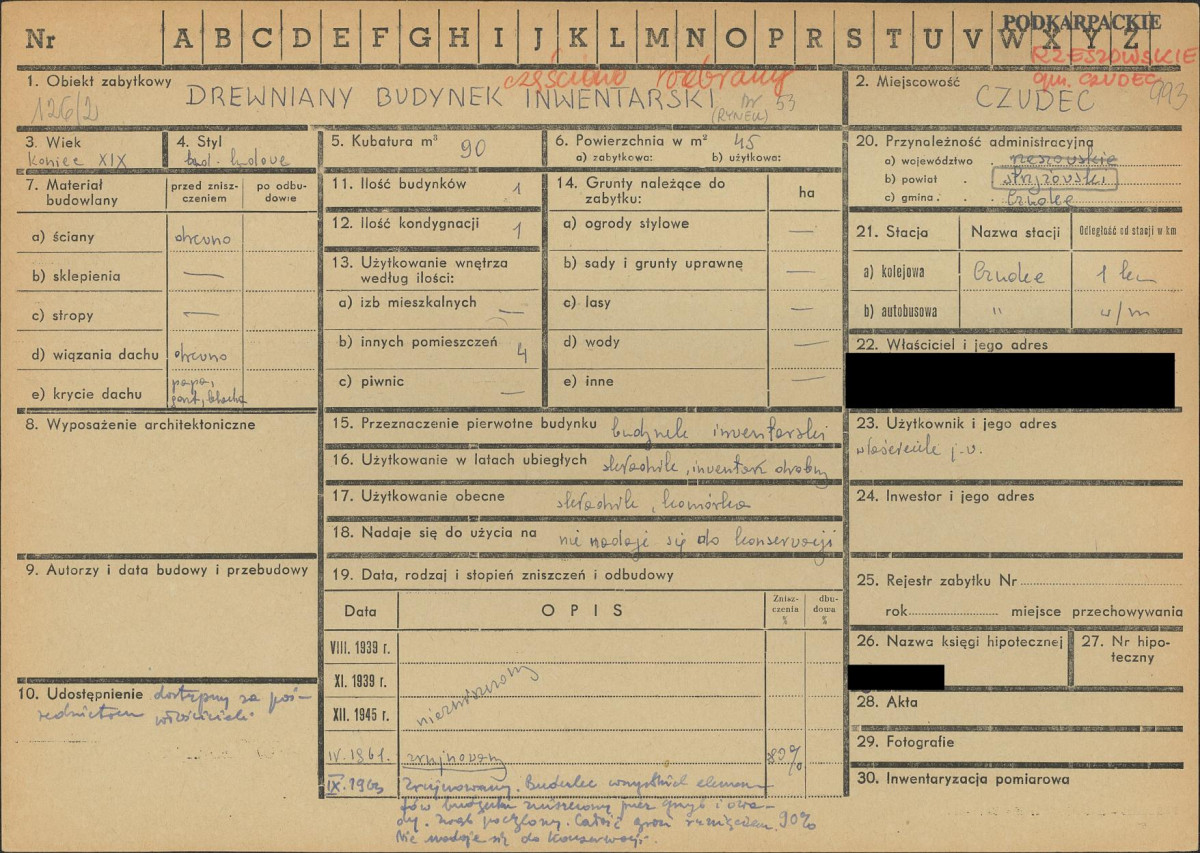 Nr A B C D E F G H I J K L M N O P R S T U V W X Y Z
PODKARPACKIE
RZESZOWSKIE
gm. CZUDEC
993
częściowo rozebrany
1. Obiekt zabytkowy
126/2
DREWNIANY BUDYNEK INWENTARSKI nr 53
(RYNEK)
2. Miejscowość
CZUDEC
3. Wiek
koniec XIX
4. Styl
bud. ludowe
5. Kubatura m³ 90
6. Powierzchnia w m² 45
a) zabytkowa: b) użytkowa:
7. Materiał budowlany
przed zniszczeniem
po odbudowie
a) ściany drewno
b) sklepienia —
c) stropy —
d) wiązania dachu drewno
e) krycie dachu papa,
gont, blacha
8. Wyposażenie architektoniczne
9. Autorzy i data budowy i przebudowy
10. Udostępnienie dostępny za poś-
rednictwem właściciela
11. Ilość budynków 1
12. Ilość kondygnacji 1
13. Użytkowanie wnętrza
według ilości:
a) izb mieszkalnych —
b) innych pomieszczeń 4
c) piwnic —
14. Grunty należące do
zabytku:
ha
a) ogrody stylowe —
b) sady i grunty uprawnę —
c) lasy —
d) wody —
e) inne —
15. Przeznaczenie pierwotne budynku budynek inwentarski
16. Użytkowanie w latach ubiegłych składnik, inwentarz drobny
17. Użytkowanie obecne składnik, komórka
18. Nadaje się do użycia na nie nadaje się do konserwacji
19. Data, rodzaj i stopień zniszczeń i odbudowy
Data
OPIS
Znisz-
czenia
%
dbu-
dowa
%
VIII. 1939 r.
XI. 1939 r.
XII. 1945 r.
niezniszczony
IV. 1961. zrujnowany 80%
IX. 1963 Zrujnowany. Budulec wszystkich elemen-
tów budynku zniszczony przez grzyb i owa-
dy. Zrąb pochylony. Całość grozi runięciem. 90%
Nie nadaje się do konserwacji.
20. Przynależność administracyjna
a) województwo rzeszowskie
b) powiat strzyżowski
c) gmina Czudec
21. Stacja
Nazwa stacji
Odległość od stacji w km
a) kolejowa Czudec 1 km
b) autobusowa " w/m
22. Właściciel i jego adres
23. Użytkownik i jego adres
właściciel j.w.
24. Inwestor i jego adres
25. Rejestr zabytku Nr
rok miejsce przechowywania
26. Nazwa księgi hipotecznej
27. Nr hipo-
teczny
28. Akta
29. Fotografie
30. Inwentaryzacja pomiarowa